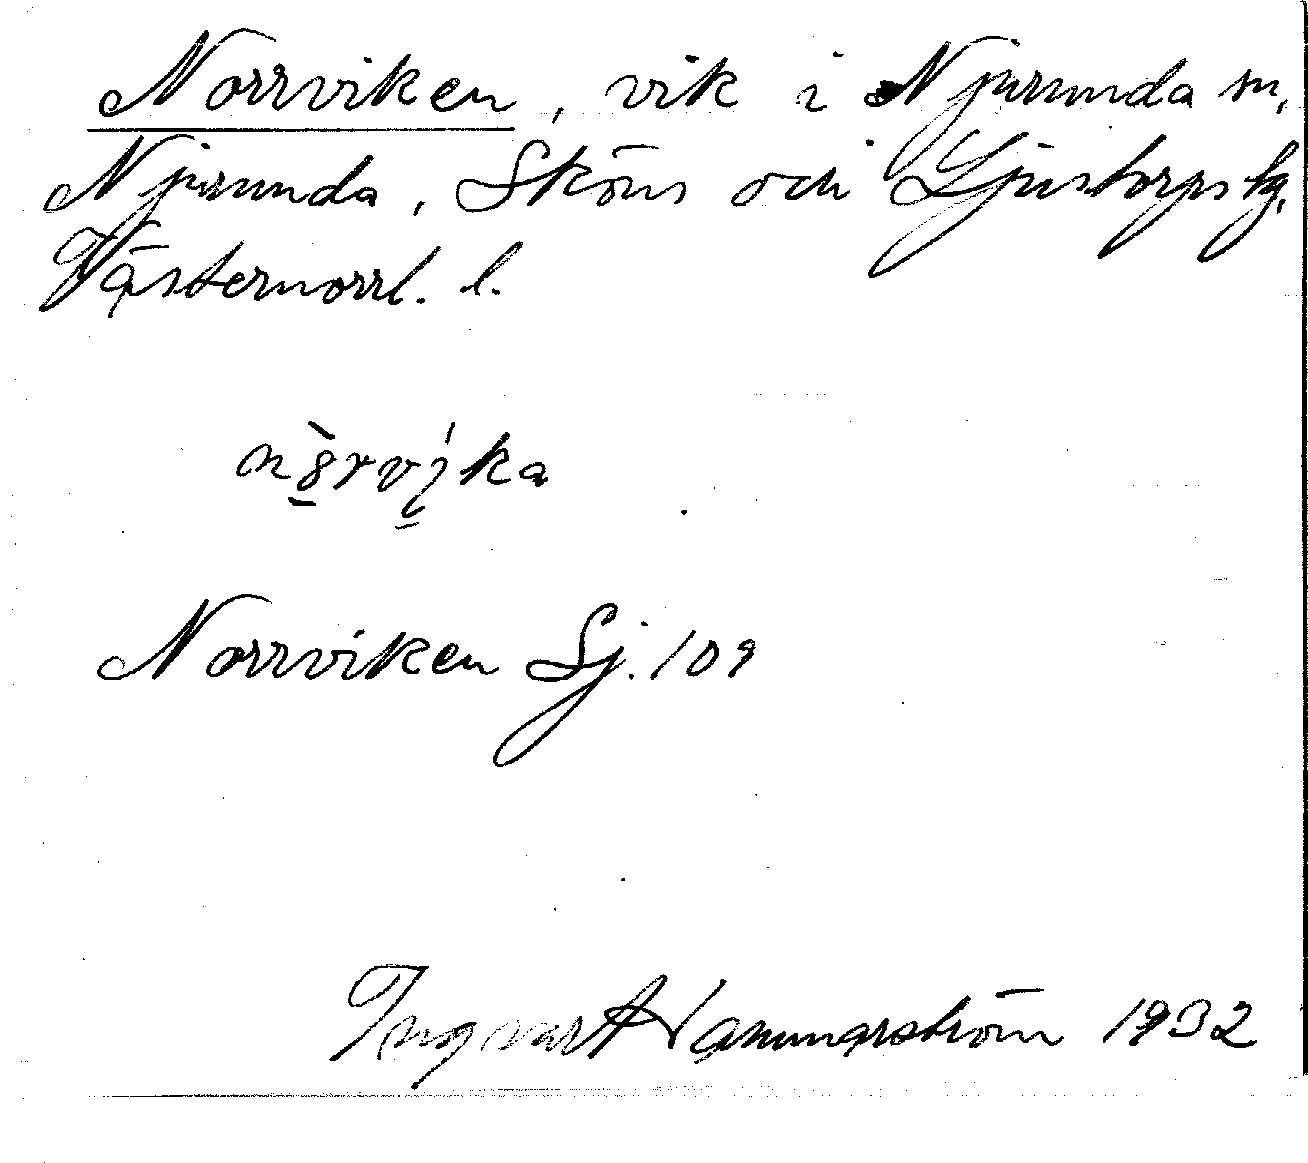 Norrviken, vik i Njurunda sn,
Njurunda, Sköns och Ljustorps tg,
Västernorrl. l.
Norrviken Sj. 109
Ingvar Hammarström 1932